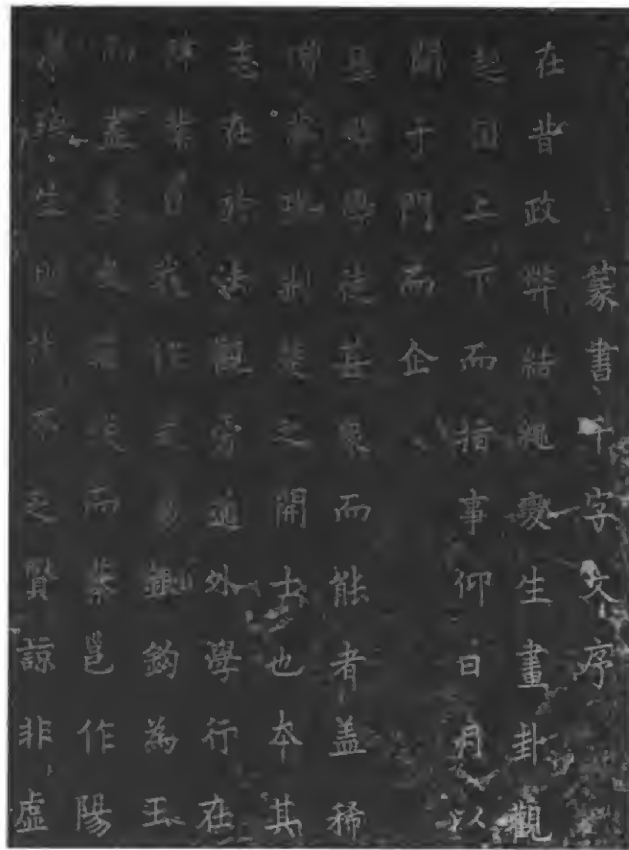 篆書千字文序
在昔政弊結繩變生畫卦觀
起上下而指事仰日月以
于門而企
學徒甚衆而能者蓋稀
楚之開士也本其
志在於法觀旁通外學行在
業自作易銀鈎為王
而盡而蔡邕作陽
生不之賢諒非虛